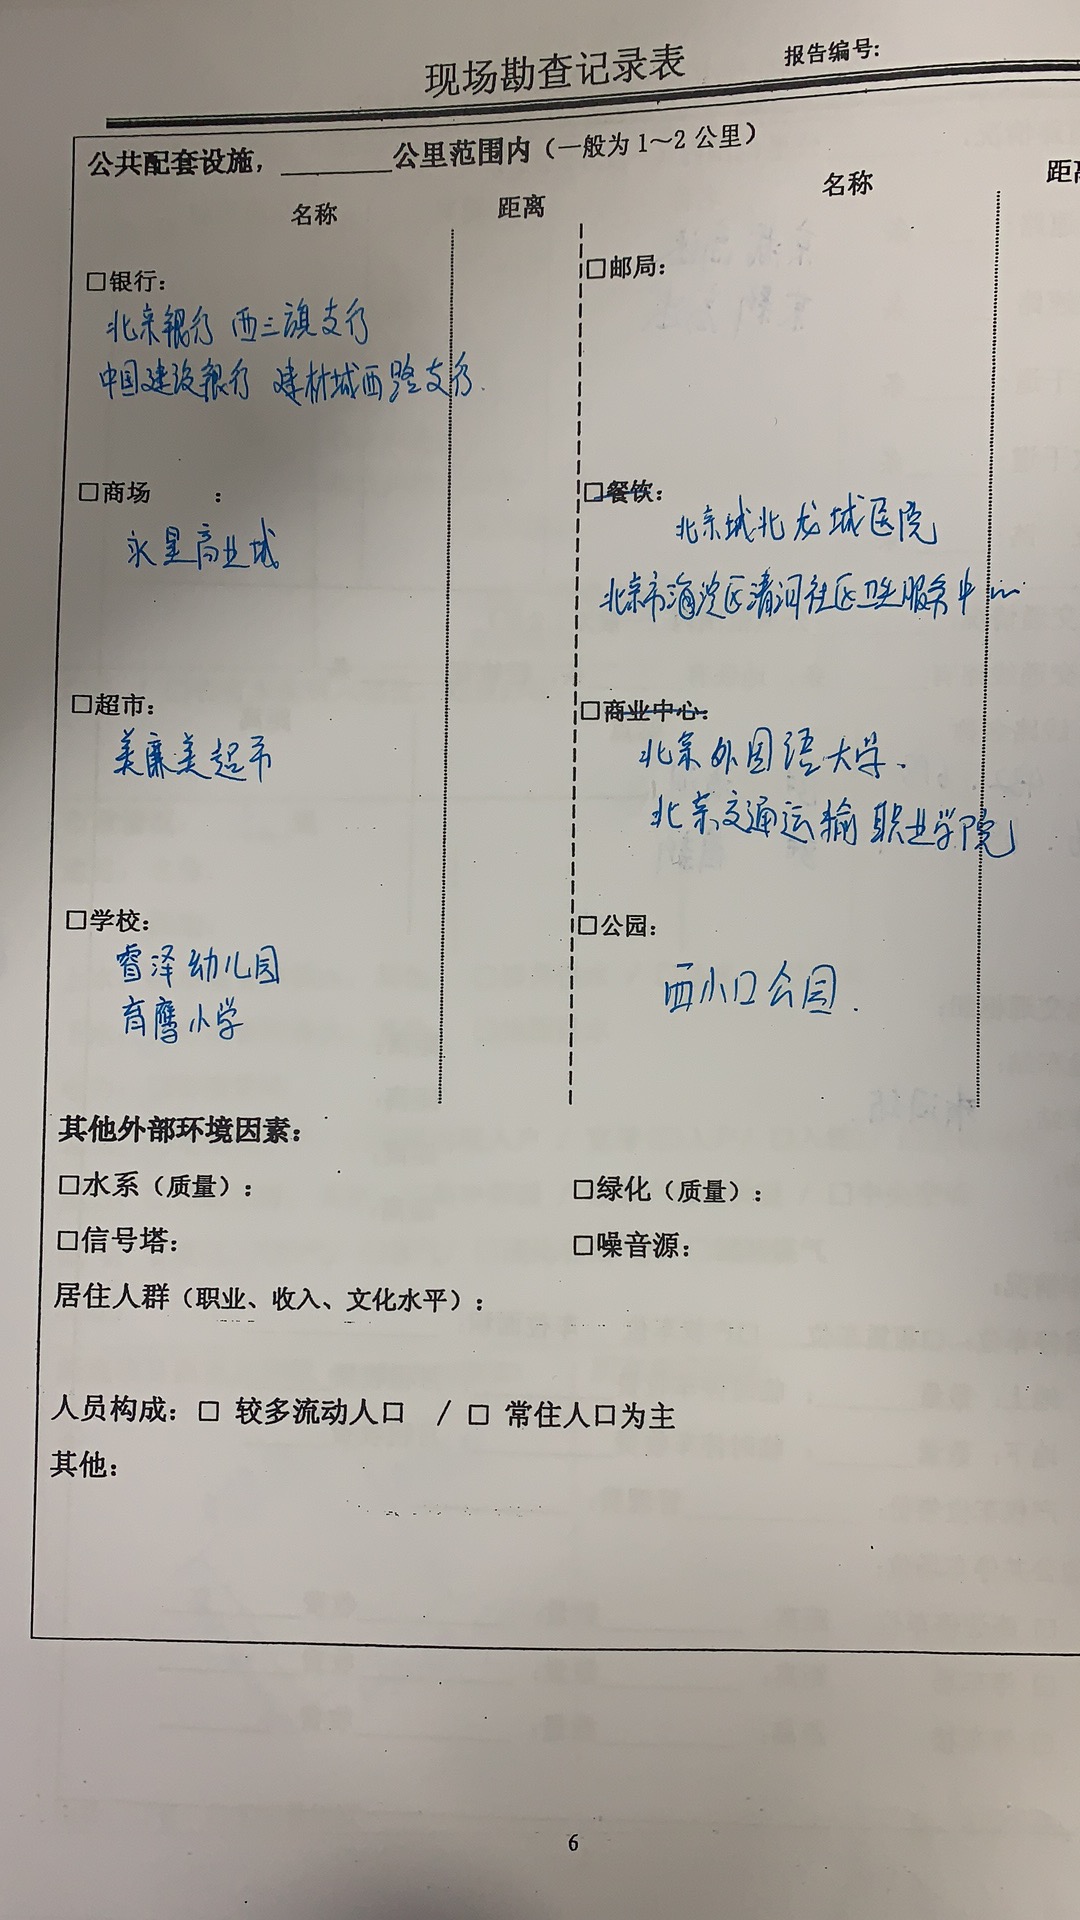 现场勘查记录表
报告编号:
公共配套设施，________公里范围内（一般为 1～2 公里）
名称 距离 名称 距离
□银行：
北京银行 西三旗支行
中国建设银行 建材城西路支行.
□邮局：
□商场 ：
永星商业城
□餐饮：
北京城北龙城医院
北京市海淀区清河社区卫生服务中心
□超市：
美廉美超市
□商业中心：
北京外国语大学.
北京交通运输职业学院
□学校：
睿泽幼儿园
育鹰小学
□公园：
西小口公园.
其他外部环境因素：
□水系（质量）： □绿化（质量）：
□信号塔： □噪音源：
居住人群（职业、收入、文化水平）：
人员构成：□ 较多流动人口 / □ 常住人口为主
其他：
6